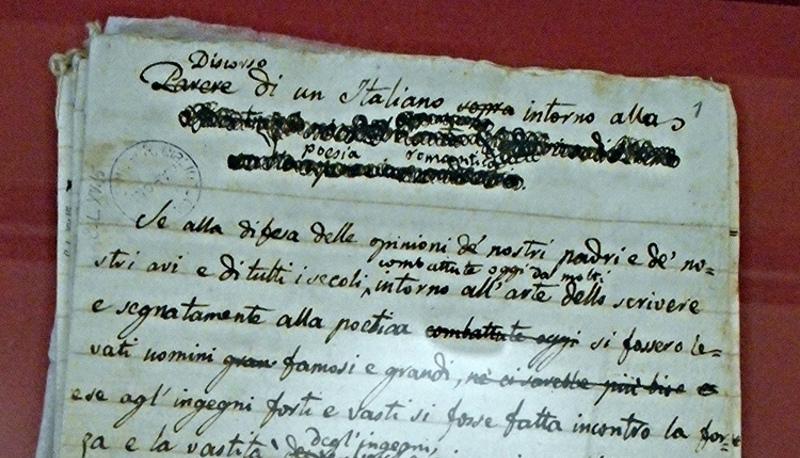 Discorso
Parere di un Italiano sopra intorno alla
poesia romantica
1
Se alla difesa delle opinioni de' nostri padri e de' no=
combattute oggi da molti
stri avi e di tutti i secoli, intorno all'arte dello scrivere
e segnatamente alla poetica combattute oggi si fossero le=
vati uomini gran famosi e grandi, nè ci sarebbe più
ese agl'ingegni forti e vasti si fosse fatta incontro la for=
degl'ingegni,
za e la vastità